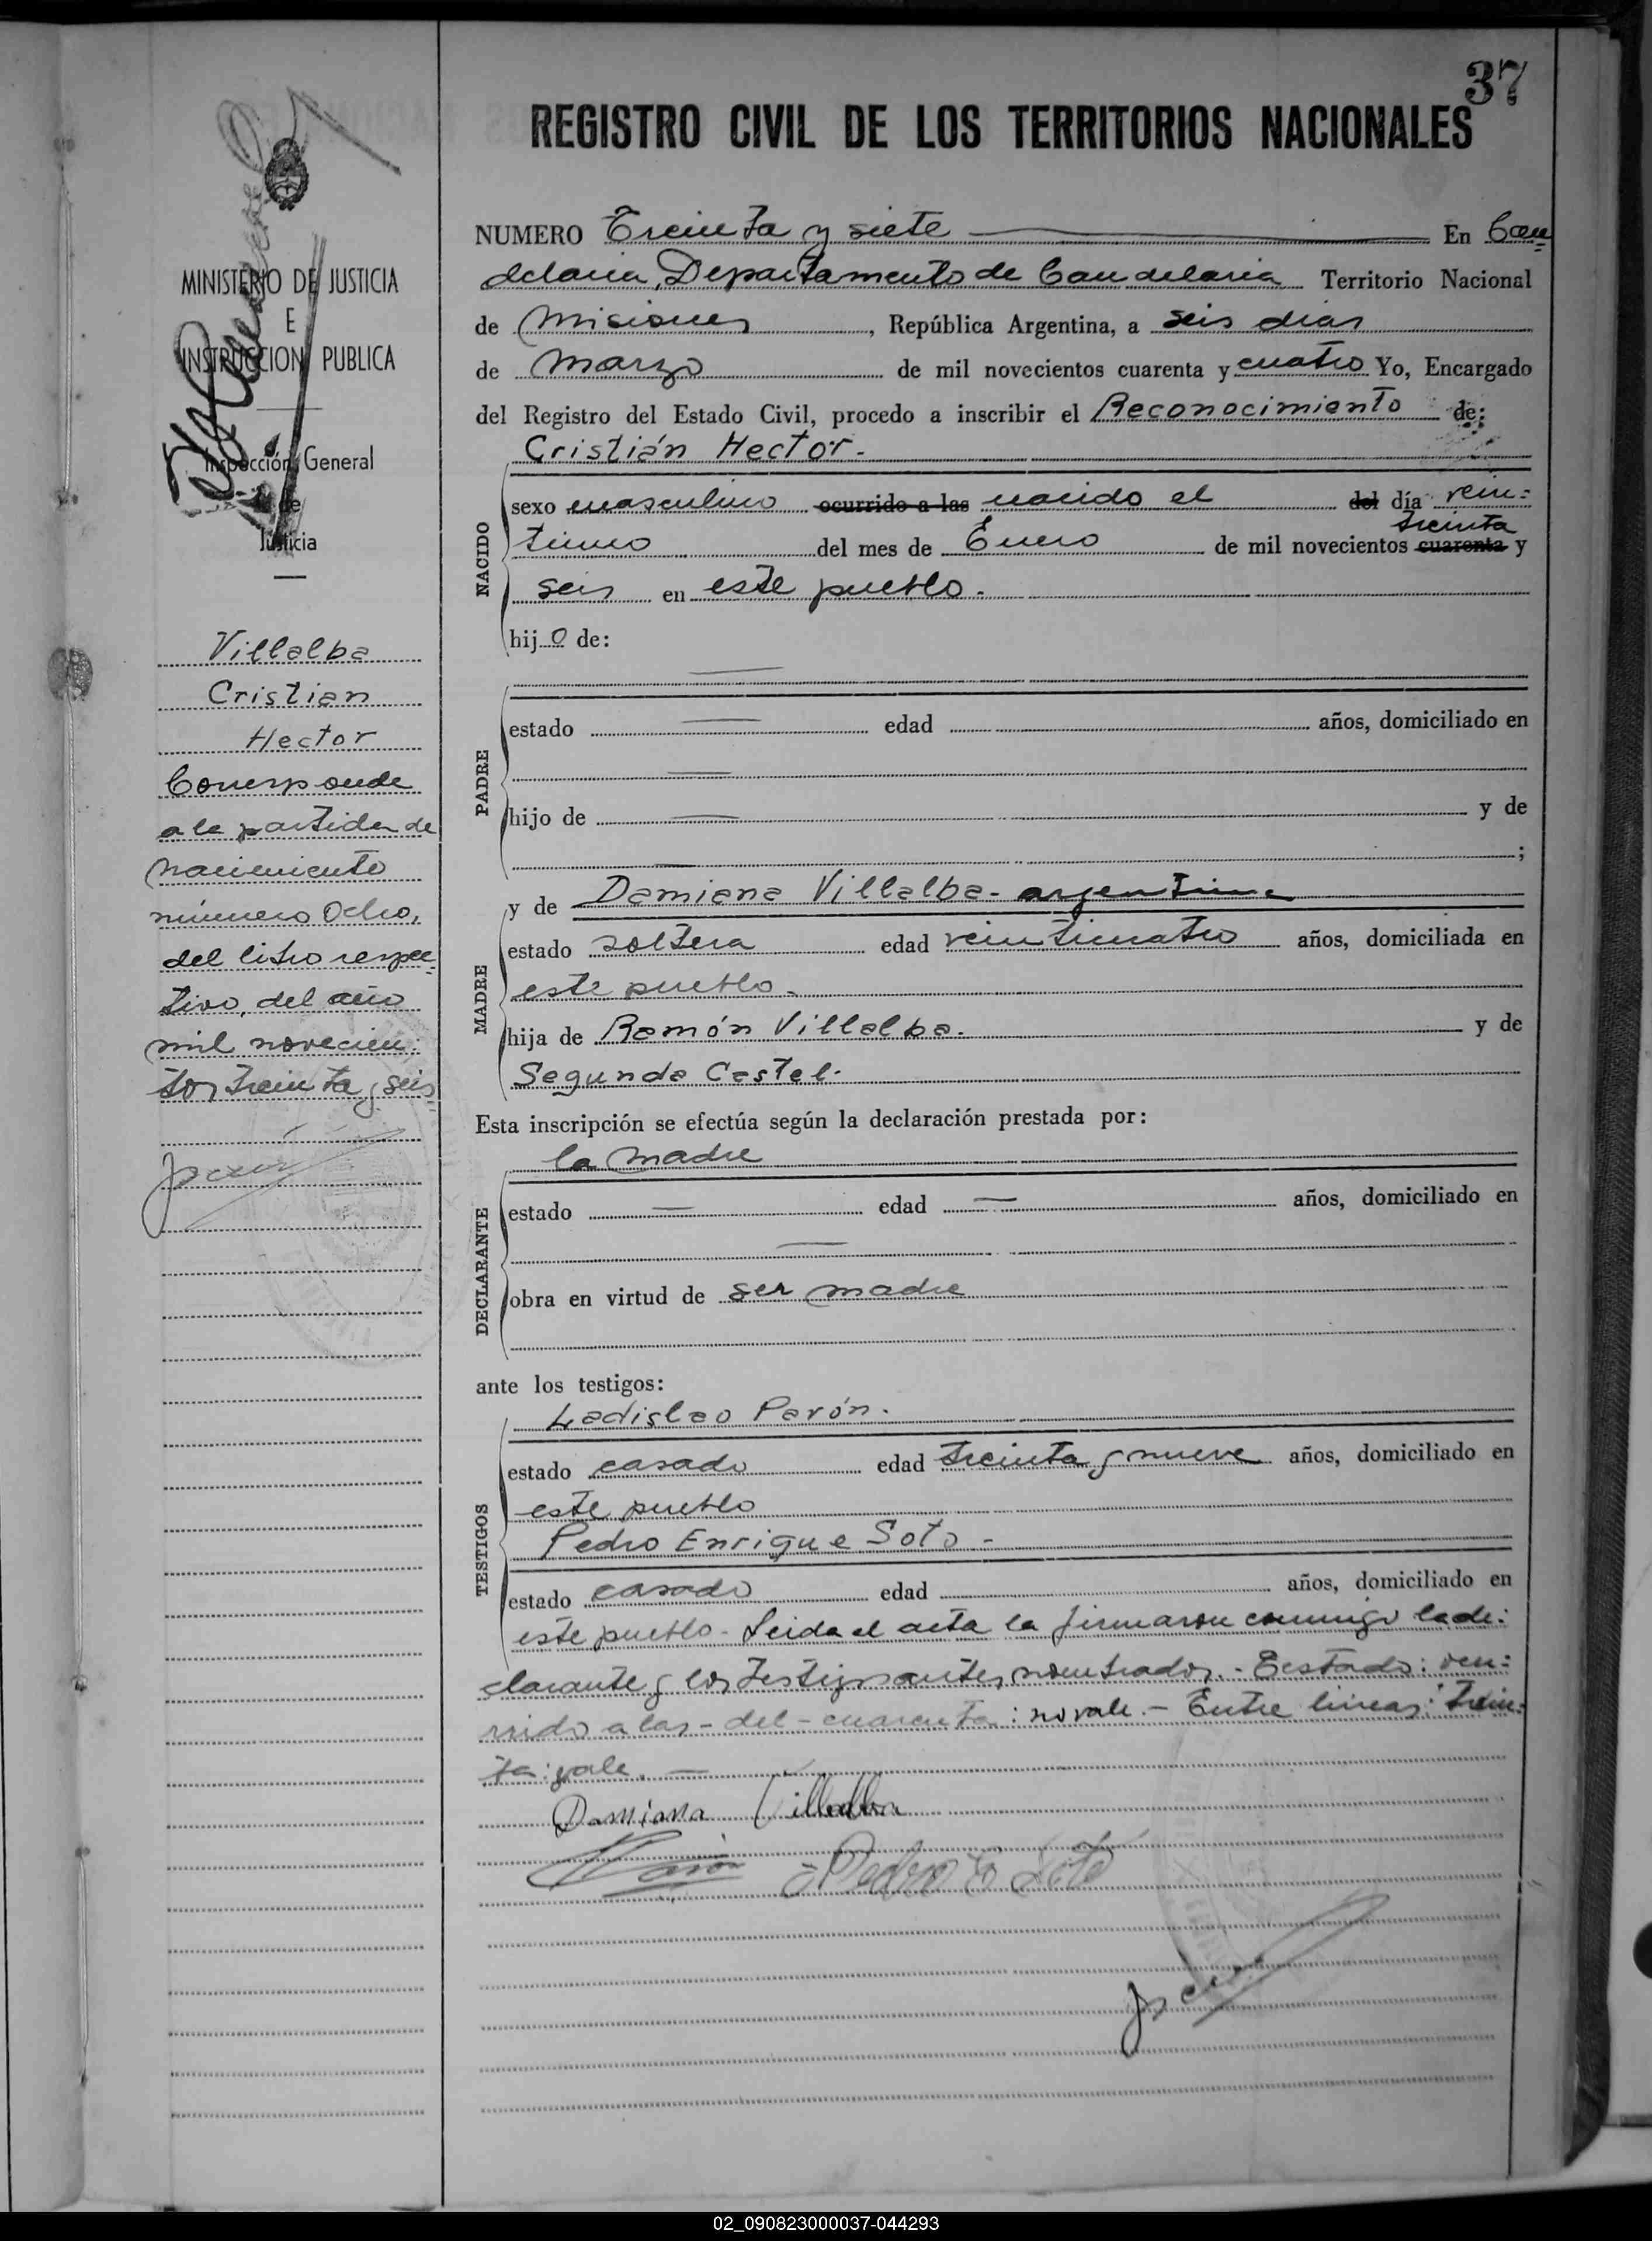 37
REGISTRO CIVIL DE LOS TERRITORIOS NACIONALES
MINISTERIO DE JUSTICIA
E
INSTRUCCION PUBLICA
Inspección General
de
Justicia
Villalba
Cristian
Hector
Corresponde
a la partida de
nacimiento
número Ocho,
del libro respec=
tivo, del año
mil novecien=
tos treinta y seis
NUMERO Treinta y siete En Can=
delaria, Departamento de Candelaria Territorio Nacional
de Misiones, República Argentina, a seis días
de Marzo de mil novecientos cuarenta y cuatro Yo, Encargado
del Registro del Estado Civil, procedo a inscribir el Reconocimiento de:
Cristián Hector.
NACIDO
sexo masculino ocurrido a las nacido el del día vein=
treinta
tiuno del mes de Enero de mil novecientos cuarenta y
seis en este pueblo.
hijo de:
PADRE
estado edad años, domiciliado en
hijo de y de
;
y de Damiana Villalba - argentina
MADRE
estado soltera edad veinticuatro años, domiciliada en
este pueblo.
hija de Ramón Villalba. y de
Segunda Castel.
Esta inscripción se efectúa según la declaración prestada por:
la madre
DECLARANTE
estado edad años, domiciliado en
obra en virtud de ser madre
ante los testigos:
Ladislao Pavón.
TESTIGOS
estado casado edad treinta y nueve años, domiciliado en
este pueblo
Pedro Enrique Soto -
estado casado edad años, domiciliado en
este pueblo - Leida el acta la firmaron conmigo la de=
clarante y los testigos antes nombrados. - Testado: ocu=
rrido a las - del - cuarenta: no vale. - Entre lineas: trein=
ta: vale. -
Damiana Villalba
Pavón Pedro E Soto
02_090823000037-044293